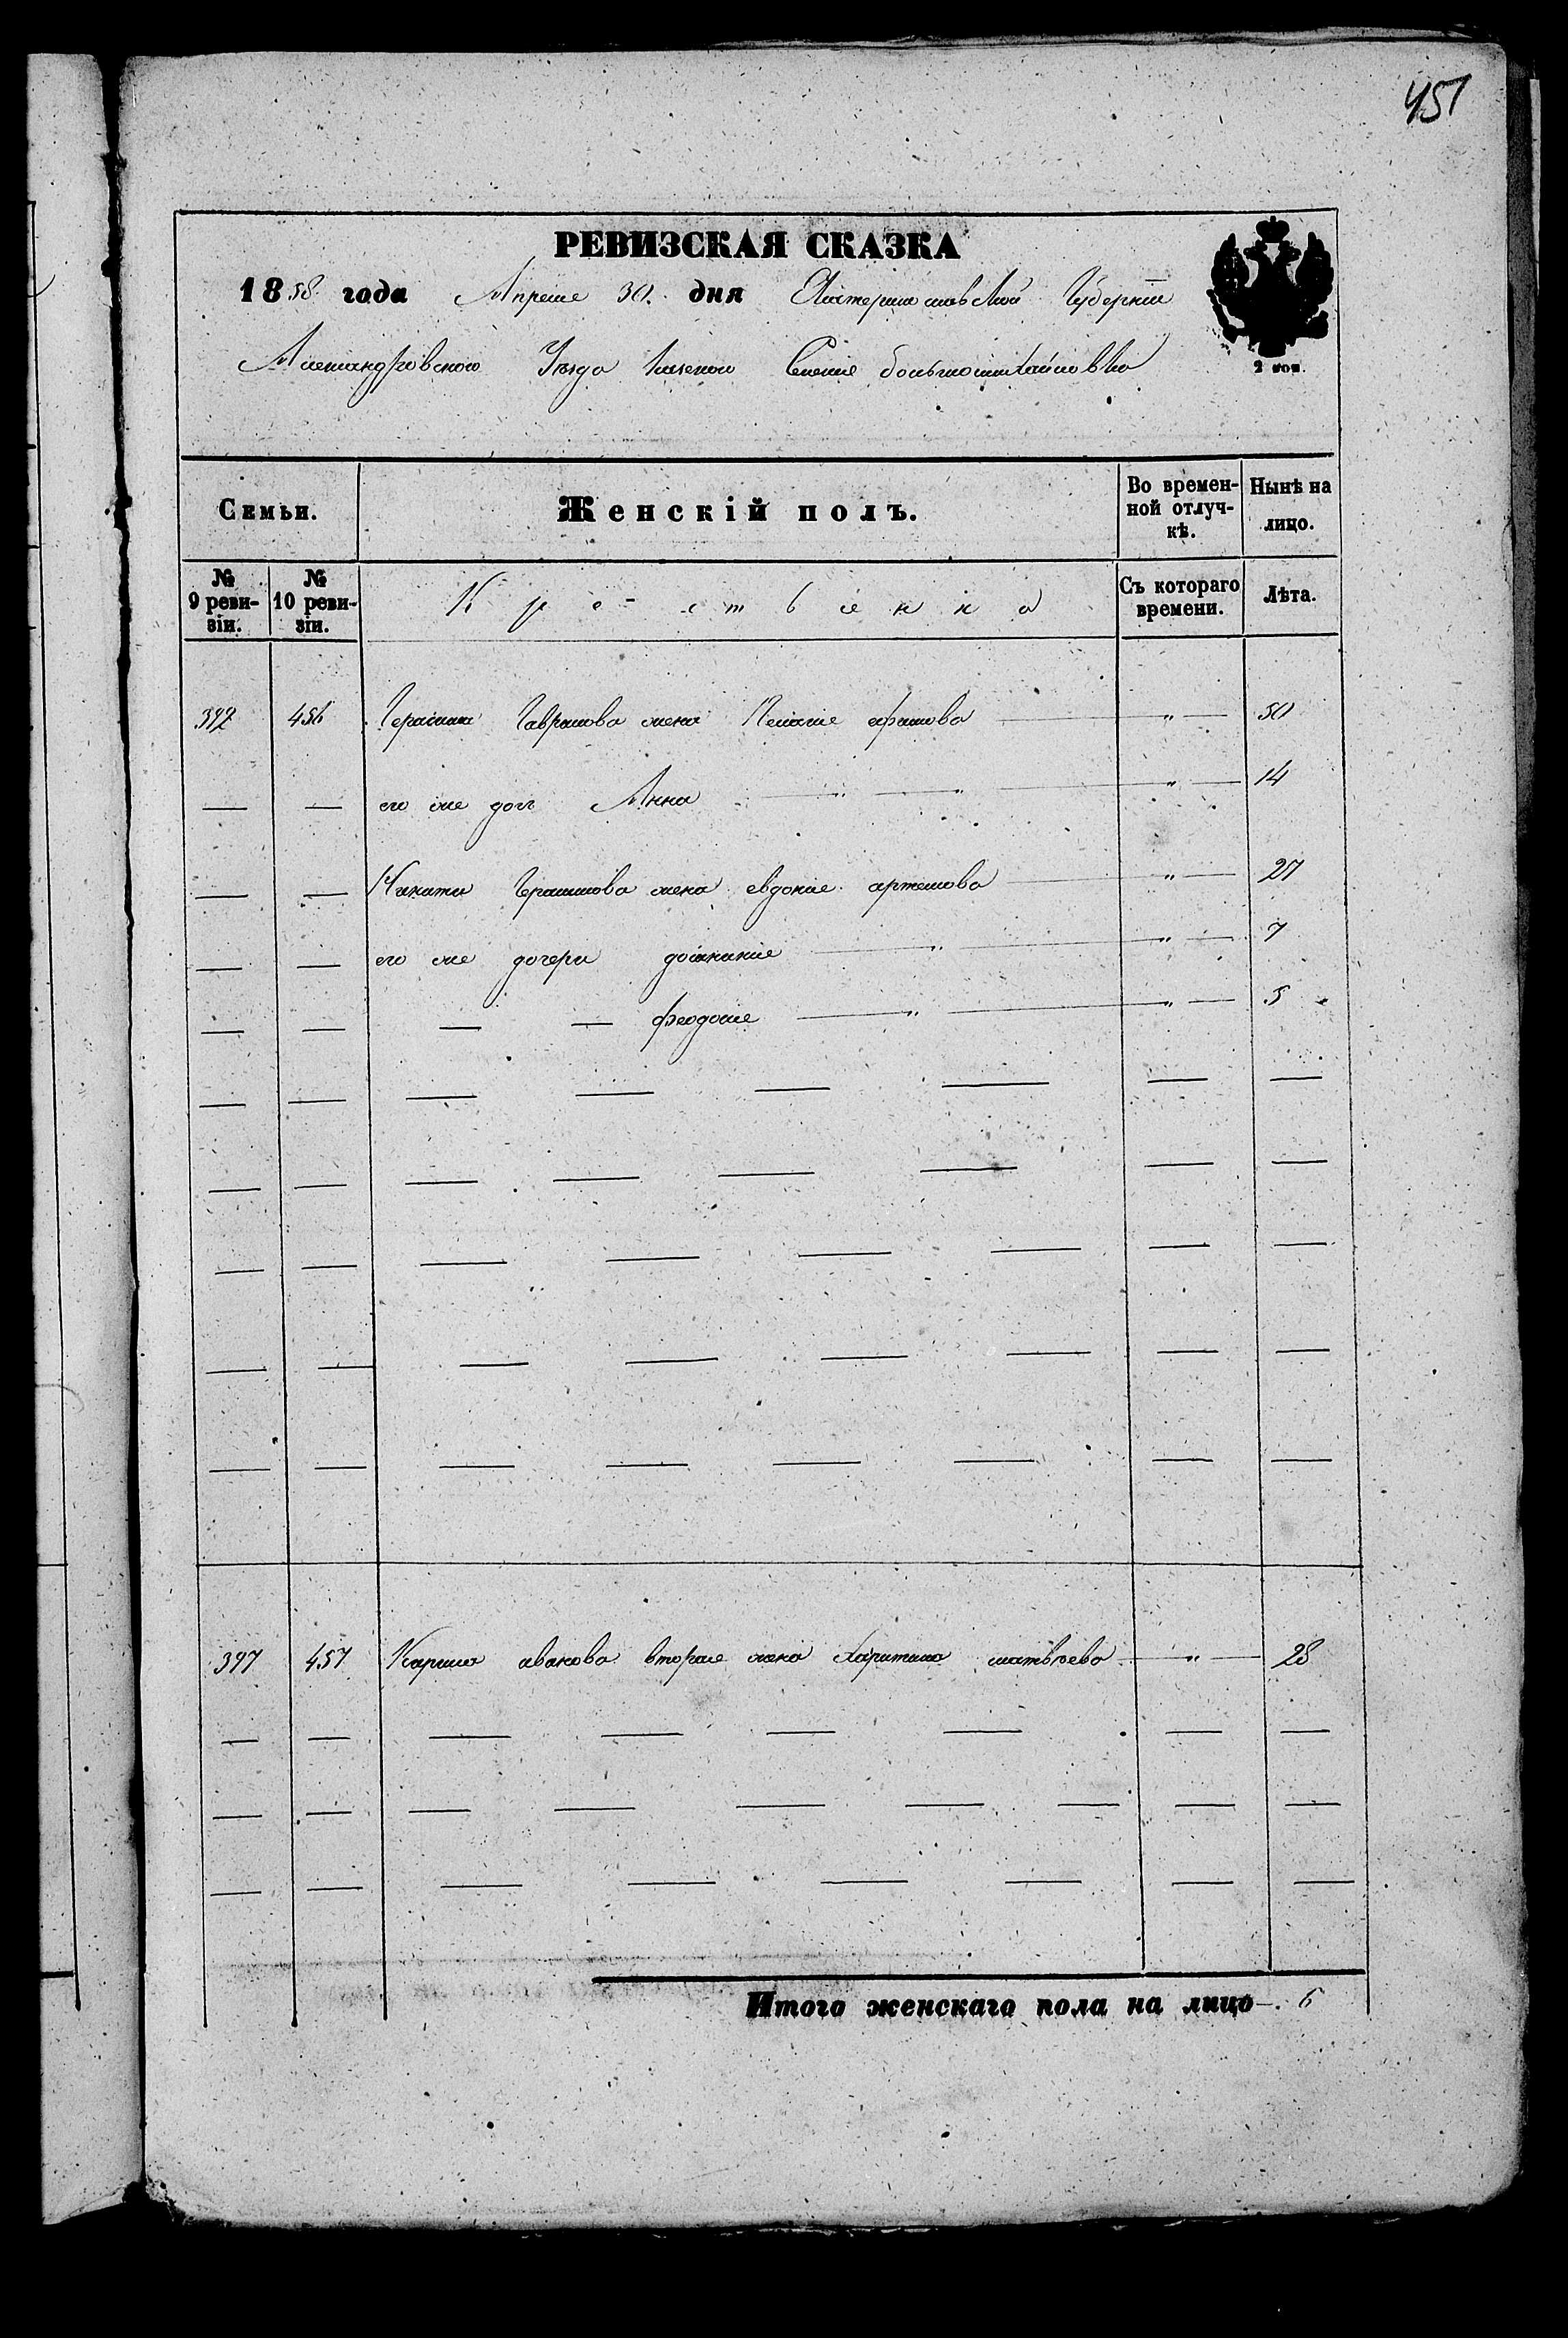 451
РЕВИЗСКАЯ СКАЗКА
1858 года Апреля 30. дня Екатеринославской Губернии
Александровского Уезда Селение
2 коп.
Семьи. Женскій полъ. Во времен-ной отлуч-кѣ. Нынѣ на лицо.
№ 9 реви-зіи. № 10 реви-зіи. Съ котораго времени. Лѣта.
392 456 Герасима Гаврилова жена Пелагие " 50
— — его же доч Анна " " " 14
— — Никита Герасимова жена евдокие артемова " 27
— — его же дочери " " 7
— — — — феодосие " " 5
397 457 вторая жена Харитина матвѣева " 28
Итого женскаго пола на лицо 6